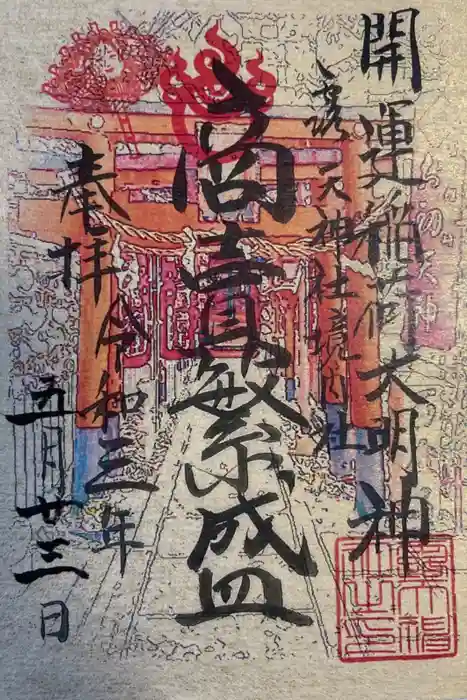 開運稲荷大明神
露天神社境内社
商賣繁盛
奉拝
令和三年
五月廿三日